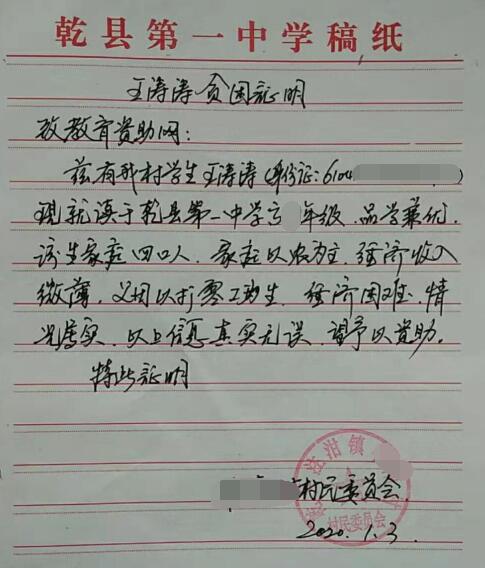 乾县第一中学稿纸
王涛涛贫困证明
致教育资助网：
兹有我村学生王涛涛（身份证：6104
现就读于乾县第一中学高 年级，品学兼优，
该生家庭四口人，家庭以农为主，经济收入
微薄，父母以打零工为生，经济困难，情
况属实，以上信息真实无误，望予以资助。
特此证明
注泔镇
村民委员会
村民委员会
2020.1.3.